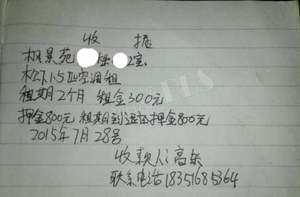 收 据
枫景苑 幢 室
松下1.5匹空调租
租期2个月 租金300元
押金800元 租期到退还押金800元
2015年7月28号
收款人:高
联系电话18351685364